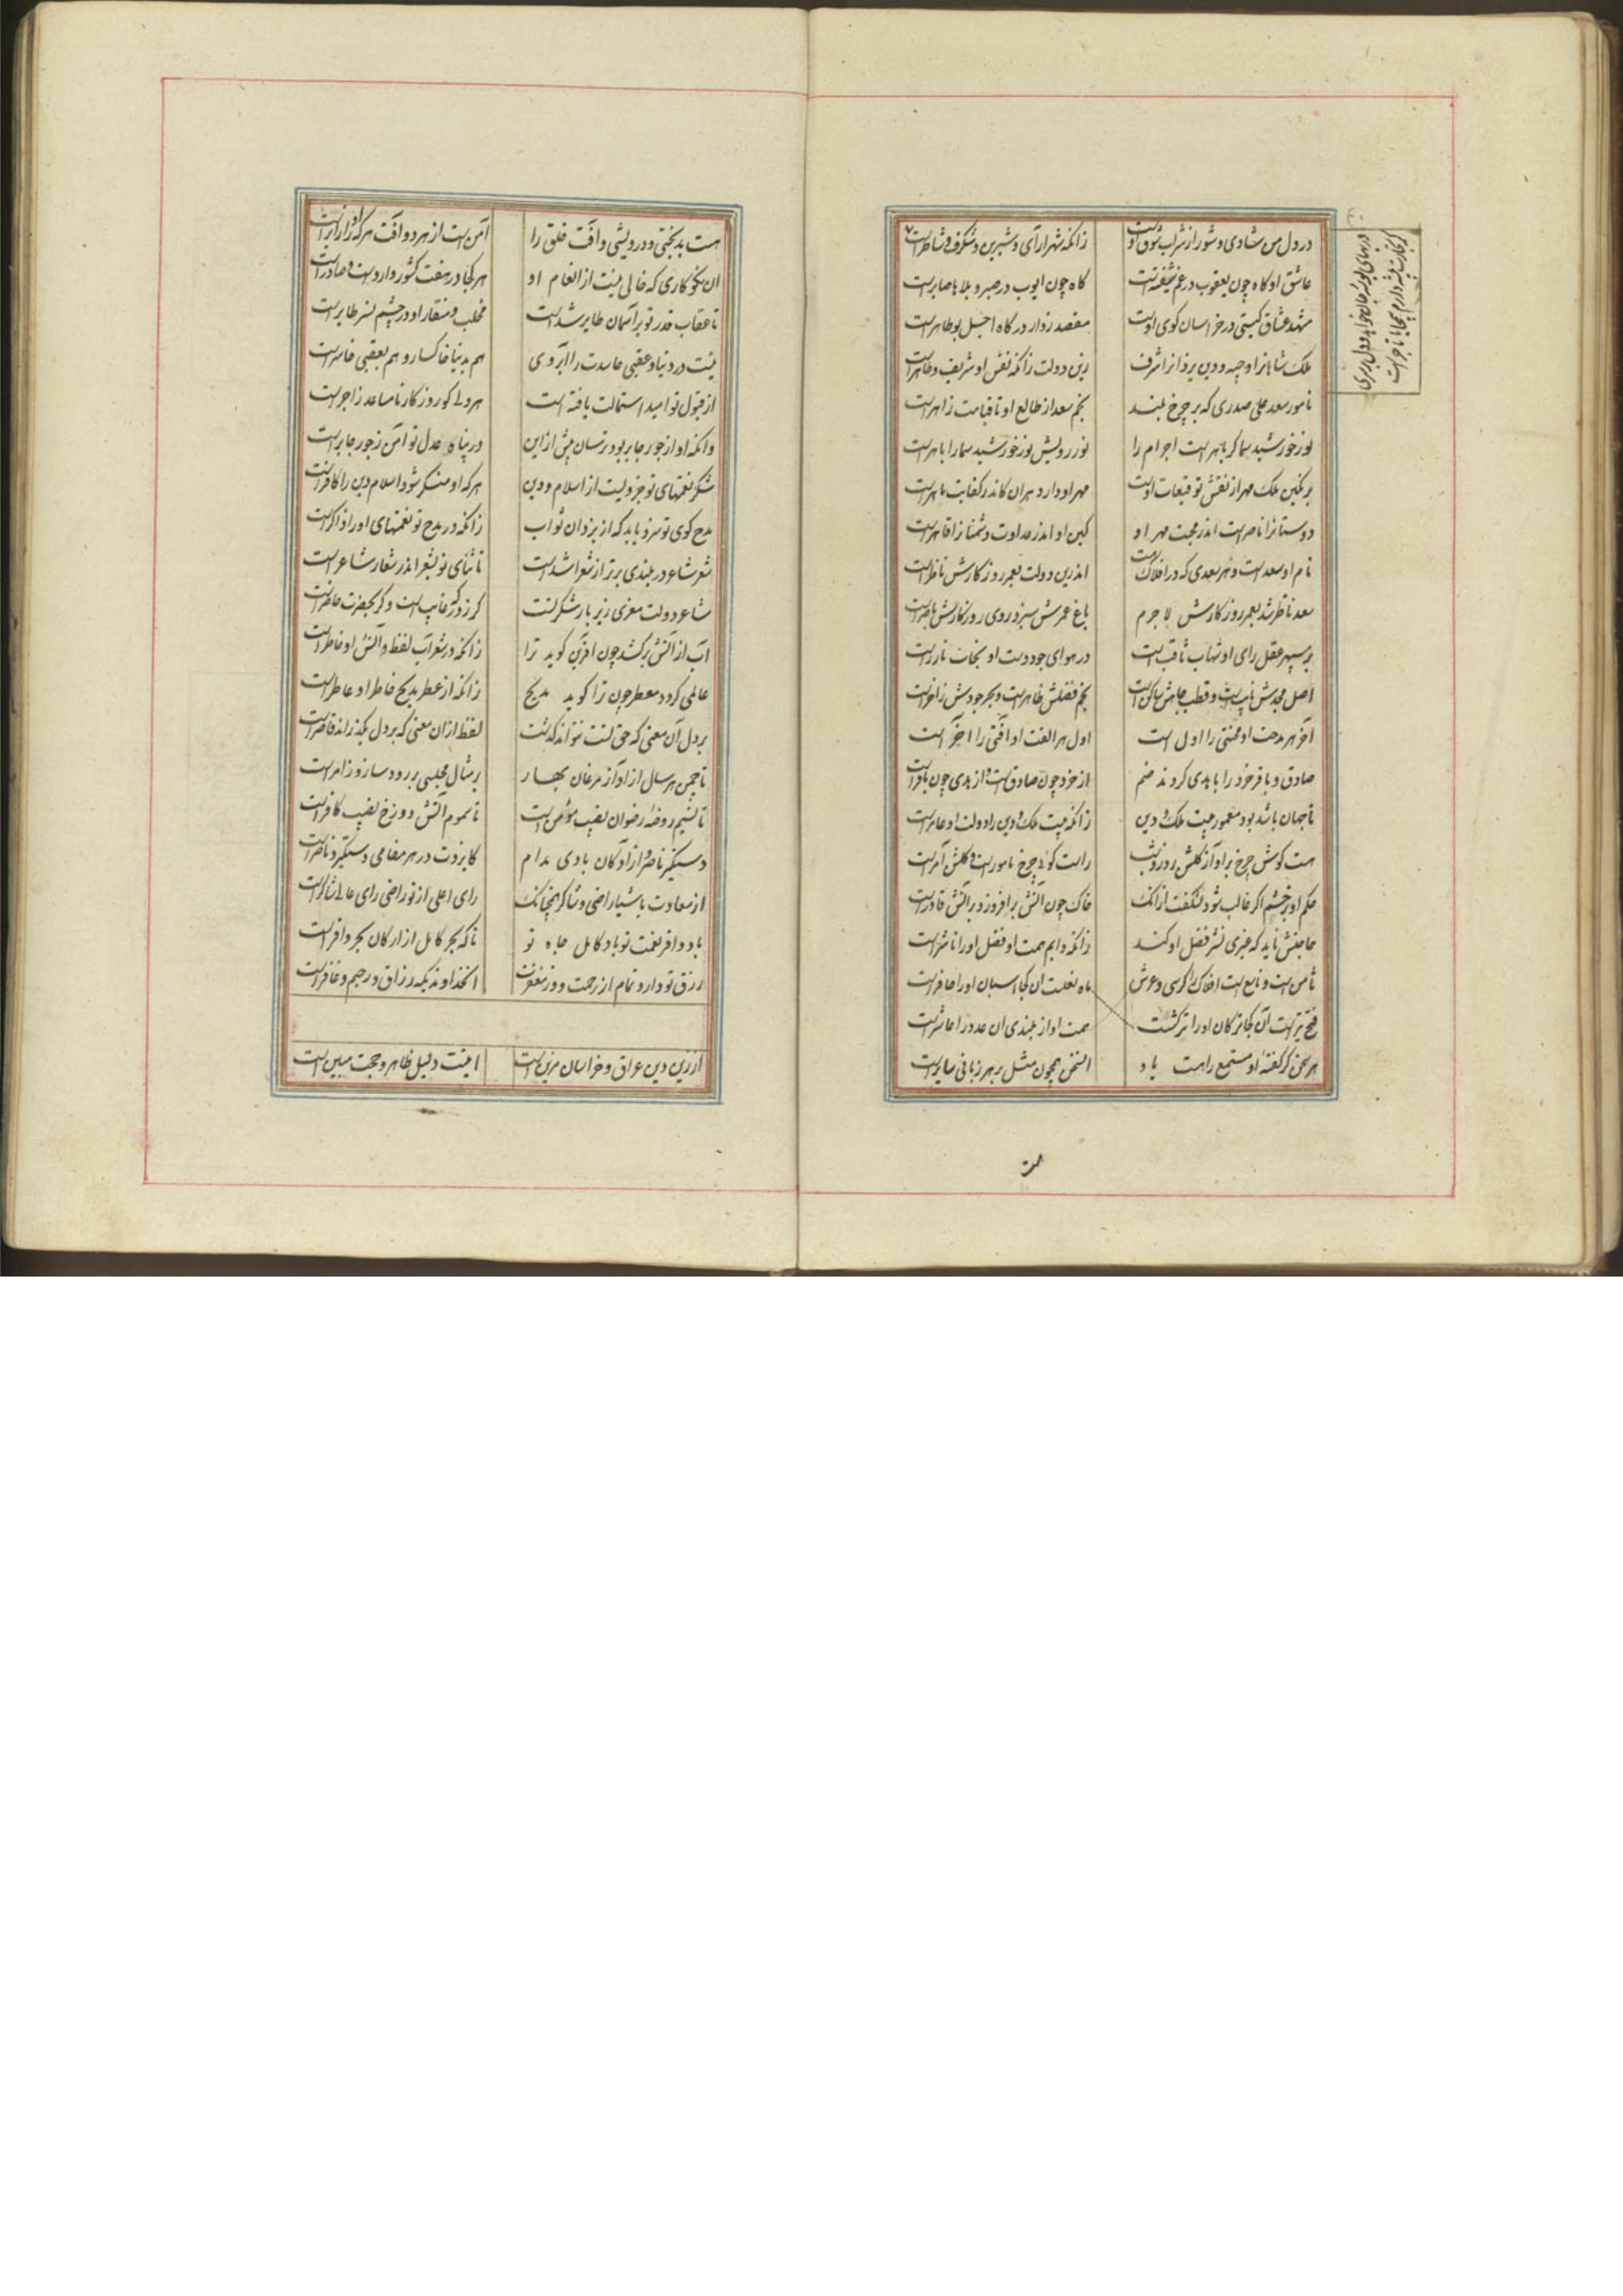 در دل من شادی و شور از شراب شوق اوست
زانکه شهرآرای و شیرین و شگرف و شاطرست
عاشق او گاه چون یعقوب در غم شیفته است
گاه چون ایوب در صبر و بلاها صابرست
مشهد عشاق گیتی در خراسان کوی اوست
مقصد زوار درگاه اجل بوطاهرست
ملک شاهانرا وجیه و دین یزدانرا شرف
زین دولت زانکه نفس او شریف و طاهرست
نامور سعد علی صدری که بر چرخ بلند
نجم سعد از طالع او تا قیامت زاهرست
نور خورشید سما گر باهرست اجرام را
نور رویش نور خورشید سما را باهرست
بر نگین ملک مهر از نقش توقیعات اوست
مهر او دارد هران کاندر کفایت ماهرست
دوستانرا ناصرست اندر محبت مهر او
کین او اندر عداوت دشمنانرا قاهرست
نام او سعدست و هر سعدی که در افلاک هست
اندرین دولت بعمر روزگارش ناظرست
سعد ناظر شد بعمر روزگارش لاجرم
باغ عمرش سبز و روی روزگارش ناضرست
بر سپهر عقل رای او شهاب ثاقب است
در هوای جود دست او سحاب
اصل مجدش ثابت است و قطب جاهش ساکن است
نجم فضلش ظاهرست و بحر جودش زاخرست
آخر هر مدحت او محنتی را اول است
اول هر الفت او آفتی را آخر است
صادق و باقر خرد را با بدی کردند ضم
از خرد چون صادق است و از بدی چون باقرست
تا جهان باشد بود معمور بیت ملک و دین
زانکه بیت ملک و دین را دولت او عامرست
هست گوش چرخ بر آواز کلکش روز و شب
راست گویی چرخ مامورست و کلکش آمرست
حکم او بر خشم اگر غالب شود نشگفت از آنک
خاک چون آتش برافروزد بر آتش قادرست
حاجتش ناید که چیزی نشر فضل او کند
زانکه دایم همت او فضل او را ناشرست
ثامن است و تاسع است افلاک را کرسی و عرش
ماه نعلست آن کجا اسبان او را حافرست
فتح تیرست آن کجا ترکان او را ترکش است
همت او از بلندی آن عدد را عاشرست
هر سخن کز گفته او مستمع را هست یاد
آن سخن همچون مثل بر هر زبانی سایرست
هست بدبختی و درویشی دو آفت خلق را
آمن است از هر دو آفت هر که او را زایرست
آن نکوکاری که خالی نیست از انعام او
هر کجا در هفت کشور واردست و صادرست
تا عقاب قدر تو بر آسمان طایر شدست
مخلب و منقار او در چشم نسر طایرست
نیست در دنیا و عقبی حاسدت را آبروی
هم بدنیا خاکسار و هم بعقبی خاسرست
از قبول تو امید استمالت یافته است
هر دلی کو روزگار نامساعد زاجرست
وانکه او از جور جابر بود ترسان پیش ازین
در پناه عدل تو آمن ز جور جابرست
شکر نعمتهای تو جزویست از اسلام و دین
هر که او منکر شود اسلام و دین را کافرست
مدح گوی تو سزد یابد که از یزدان ثواب
زانکه در مدح تو نعمتهای او را ذاکرست
شعر شاعر در بلندی برتر از شعرا شدست
تا ثنای تو بشعر اندر شعار شاعر است
شاعر دولت معزی زیر بار شکر تست
گر ز درگه غایب است و گر بحضرت حاضرست
آب از آتش برکشد چون آفرین گوید ترا
زانکه در شعر آب لفظ و آتش او خاطرست
عالمی گردد معطر چون ترا گوید مدیح
زانکه از عطر مدیح خاطر او عاطرست
بر دل آن معنی که حق تست نتواند گذشت
لفظ از آن معنی که بر دل بگذراند قاصرست
تا چمن هر سال از آواز مرغان بهار
بر مثال مجلسی بر رودساز و زامرست
تا نسیم روضه رضوان نصیب مؤمن است
تا سموم آتش دوزخ نصیب کافرست
دستگیر و ناصر آزادگان بادی مدام
کایزدت در هر مقامی دستگیر و ناصرست
از سعادت باش یا راضی و شاکر همچنانک
رای اعلی از تو راضی رای عالی شاکرست
باد وافر نعمت تو باد کامل جاه تو
تا که بحر کامل از ارکان بحر وافرست
رزق تو دارد تمام از رحمت و وز مغفرت
آن خداوندیکه رزاق و رحیم و غافرست
از زین دین عراق و خراسان مزین است
اینت دلیل ظاهر و حجت مبین است